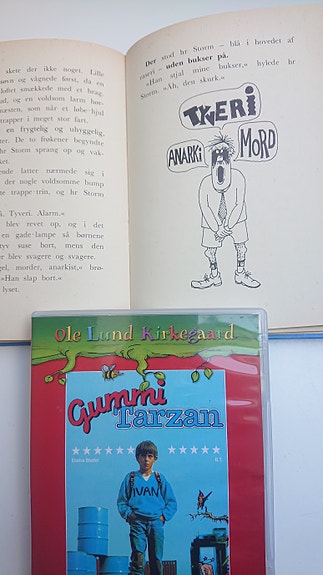 skete der ikke noget. Lille
og vågnede først, da en
smækkede med et brag
ud, og en voldsom larm
som når et løbe hjul
trapper i meget stor fart.
en frygtelig og uhyggelig,
De to frøkener begyndte
hr Storm sprang op og vak-
ket.
latter nærmede sig i
der nogle voldsomme bump
trappe-trin, og hr Storm
Tyveri. Alarm.«
blev revet op, og i det
en gade-lampe så børnene
tyv suse bort, mens den
blev svagere og svagere.
morder, anarkist,« brø-
»Han slap bort.«
lyset.
Der stod hr Storm – blå i hovedet af
raseri – uden bukser på.
»Han stjal mine bukser,« hylede hr
Storm. »Åh, den skurk.«
TYVERI
ANARKI
MORD
Ole Lund Kirkegaard
Gummi
Tarzan
★★★★★★ ★★★★★
Ekstra Bladet B.T.
IVAN